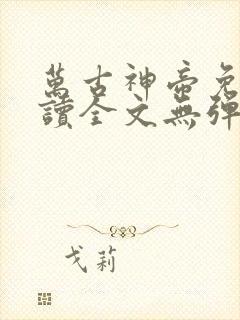 萬古神帝免
讀全文無彈
戈莉